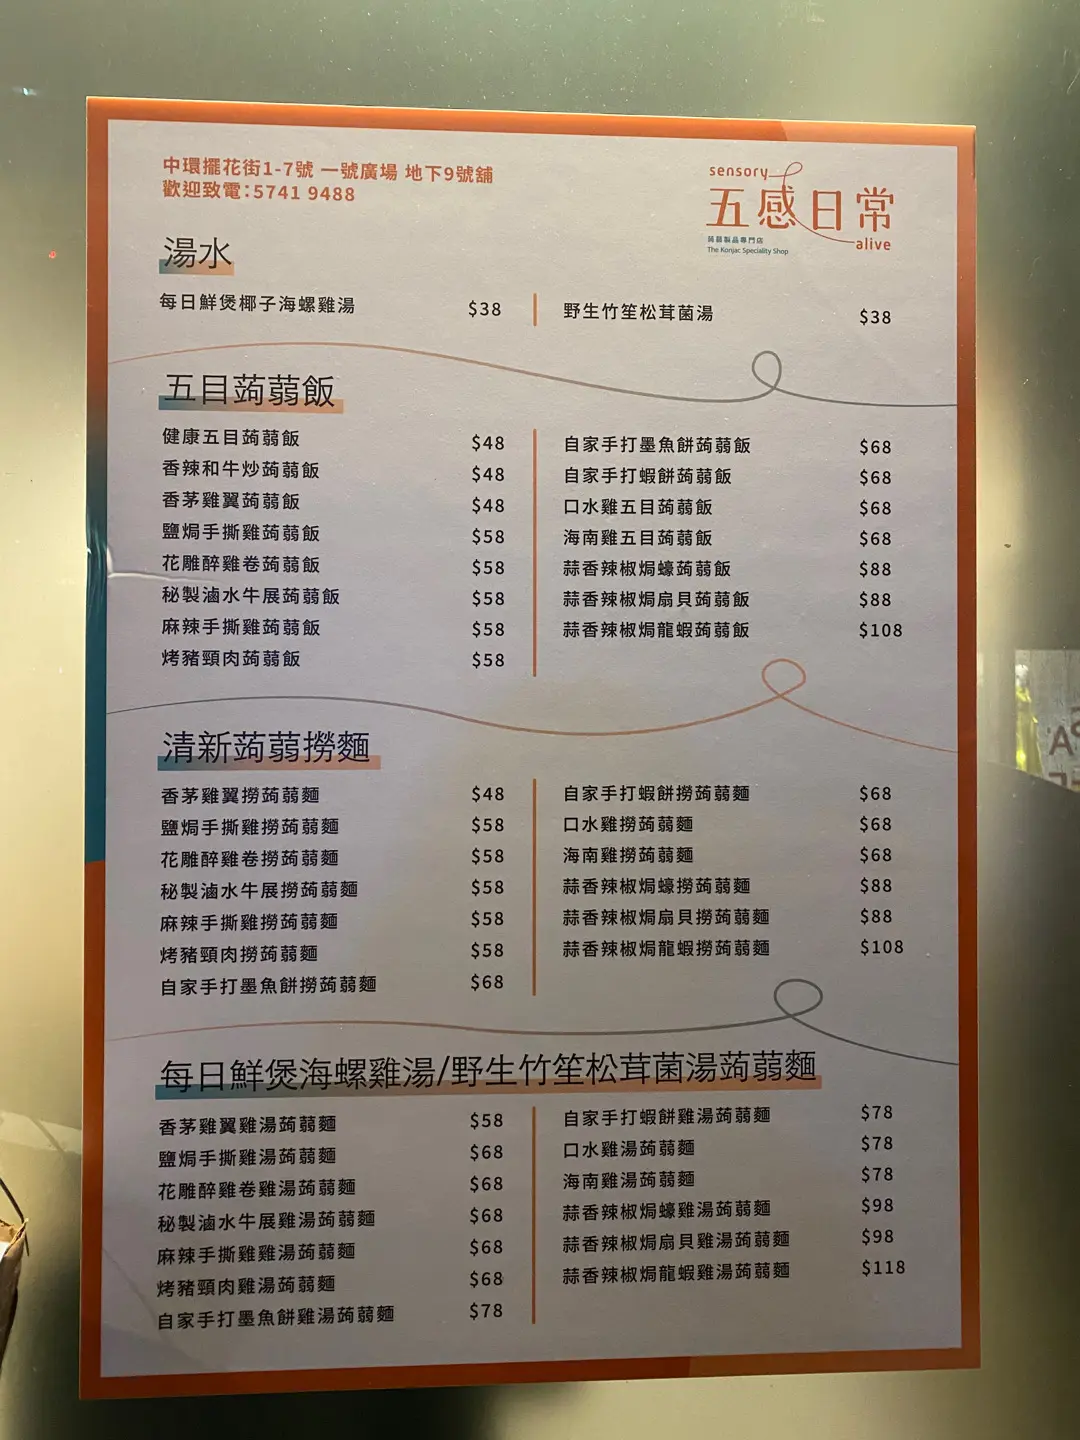 中環擺花街1-7號 一號廣場 地下9號舖
歡迎致電:5741 9488
sensory
五感日常
alive
蒟蒻製品專門店
The Konjac Speciality Shop
湯水
每日鮮煲椰子海螺雞湯 $38
野生竹笙松茸菌湯 $38
五目蒟蒻飯
健康五目蒟蒻飯 $48
香辣和牛炒蒟蒻飯 $48
香茅雞翼蒟蒻飯 $48
鹽焗手撕雞蒟蒻飯 $58
花雕醉雞卷蒟蒻飯 $58
秘製滷水牛展蒟蒻飯 $58
麻辣手撕雞蒟蒻飯 $58
烤豬頸肉蒟蒻飯 $58
自家手打墨魚餅蒟蒻飯 $68
自家手打蝦餅蒟蒻飯 $68
口水雞五目蒟蒻飯 $68
海南雞五目蒟蒻飯 $68
蒜香辣椒焗蠔蒟蒻飯 $88
蒜香辣椒焗扇貝蒟蒻飯 $88
蒜香辣椒焗龍蝦蒟蒻飯 $108
清新蒟蒻撈麵
香茅雞翼撈蒟蒻麵 $48
鹽焗手撕雞撈蒟蒻麵 $58
花雕醉雞卷撈蒟蒻麵 $58
秘製滷水牛展撈蒟蒻麵 $58
麻辣手撕雞撈蒟蒻麵 $58
烤豬頸肉撈蒟蒻麵 $58
自家手打墨魚餅撈蒟蒻麵 $68
自家手打蝦餅撈蒟蒻麵 $68
口水雞撈蒟蒻麵 $68
海南雞撈蒟蒻麵 $68
蒜香辣椒焗蠔撈蒟蒻麵 $88
蒜香辣椒焗扇貝撈蒟蒻麵 $88
蒜香辣椒焗龍蝦撈蒟蒻麵 $108
每日鮮煲海螺雞湯/野生竹笙松茸菌湯蒟蒻麵
香茅雞翼雞湯蒟蒻麵 $58
鹽焗手撕雞湯蒟蒻麵 $68
花雕醉雞卷雞湯蒟蒻麵 $68
秘製滷水牛展雞湯蒟蒻麵 $68
麻辣手撕雞雞湯蒟蒻麵 $68
烤豬頸肉雞湯蒟蒻麵 $68
自家手打墨魚餅雞湯蒟蒻麵 $78
自家手打蝦餅雞湯蒟蒻麵 $78
口水雞湯蒟蒻麵 $78
海南雞湯蒟蒻麵 $78
蒜香辣椒焗蠔雞湯蒟蒻麵 $98
蒜香辣椒焗扇貝雞湯蒟蒻麵 $98
蒜香辣椒焗龍蝦雞湯蒟蒻麵 $118